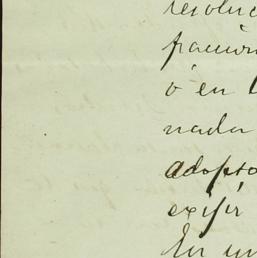 resoluc
fraccion
ó en l
nada
adopta
exijir
En un